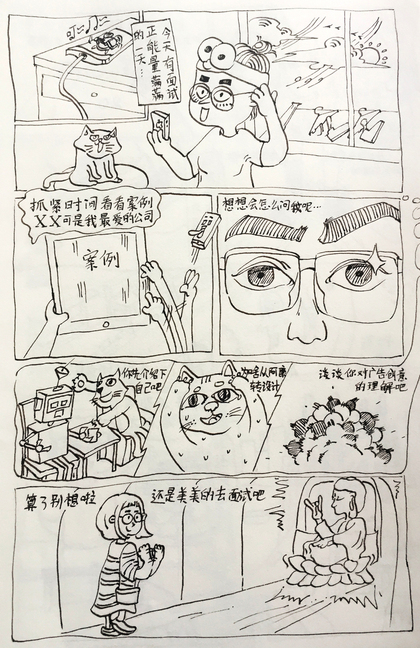 今天有面试
正能量满满
的一天…
抓紧时间看看案例
XX可是我最爱的公司
案例
想想会怎么问我呢…
你先介绍下
自己吧
为啥从
转设计
谈谈你对广告创意
的理解吧
算了别想啦
还是美美的去面试吧